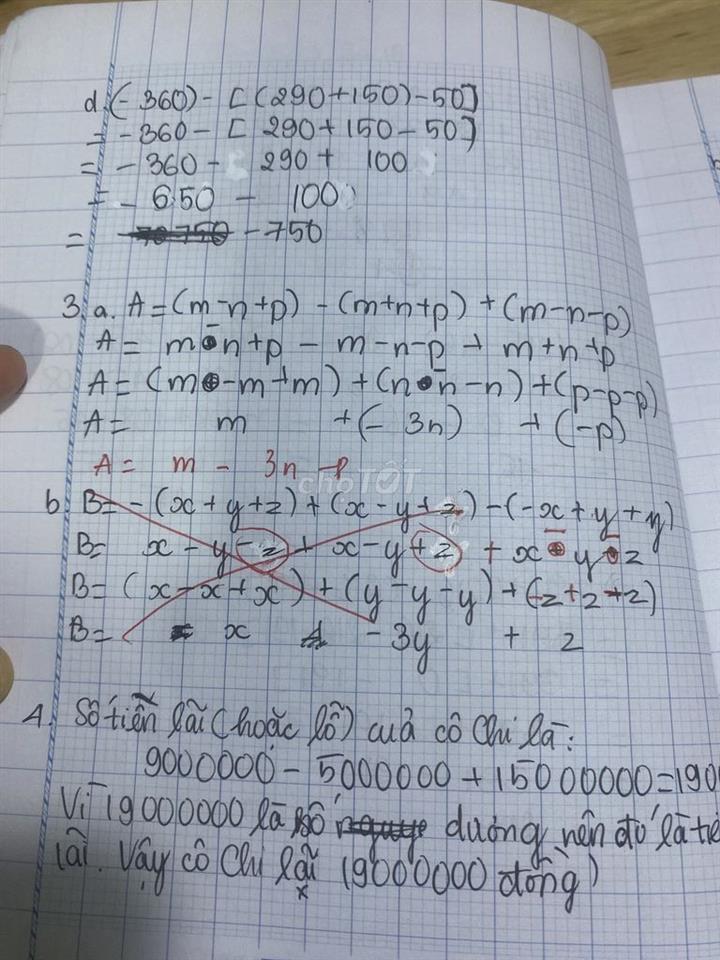 d. (-360) - [(290+150) - 50]
= -360 - [290+150-50]
= -360 - 290 + 100
= - 650 - 100
= -750
3. a. A = (m-n+p) - (m+n+p) + (m-n-p)
A = m-n+p - m-n-p + m+n+p
A = (m-m+m) + (n-n-n) + (p-p-p)
A = m + (- 3n) + (-p)
A = m - 3n - p
choTỐT
b B = -(x+y+z) + (x-y+z) - (-x+y+y)
B = x - y - z + x - y + z + x y z
B = (x-x+x) + (y-y-y) + (z+z+z)
B = x - 3y + z
4. Số tiền lãi (hoặc lỗ) cuả cô Chi là:
9000000 - 5000000 + 15000000 = 190
Vì 19000000 là số dương nên đó là tiề
lãi. Vậy cô Chi lãi 19000000 đồng)